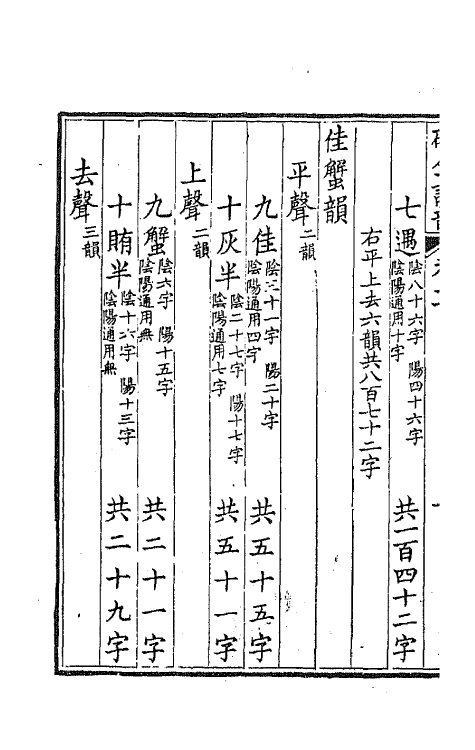 七遇 陰八十六字 陽四十六字 陰陽通用十字 共一百四十二字
右平上去六韻共八百七十二字
佳蟹韻
平聲 二韻
九佳 陰三十一字 陽二十字 陰陽通用四字 共五十五字
十灰半 陰二十七字 陽十七字 陰陽通用七字 共五十一字
上聲 二韻
九蟹 陰六字 陽十五字 陰陽通用無 共二十一字
十賄半 陰十六字 陽十三字 陰陽通用無 共二十九字
去聲 三韻